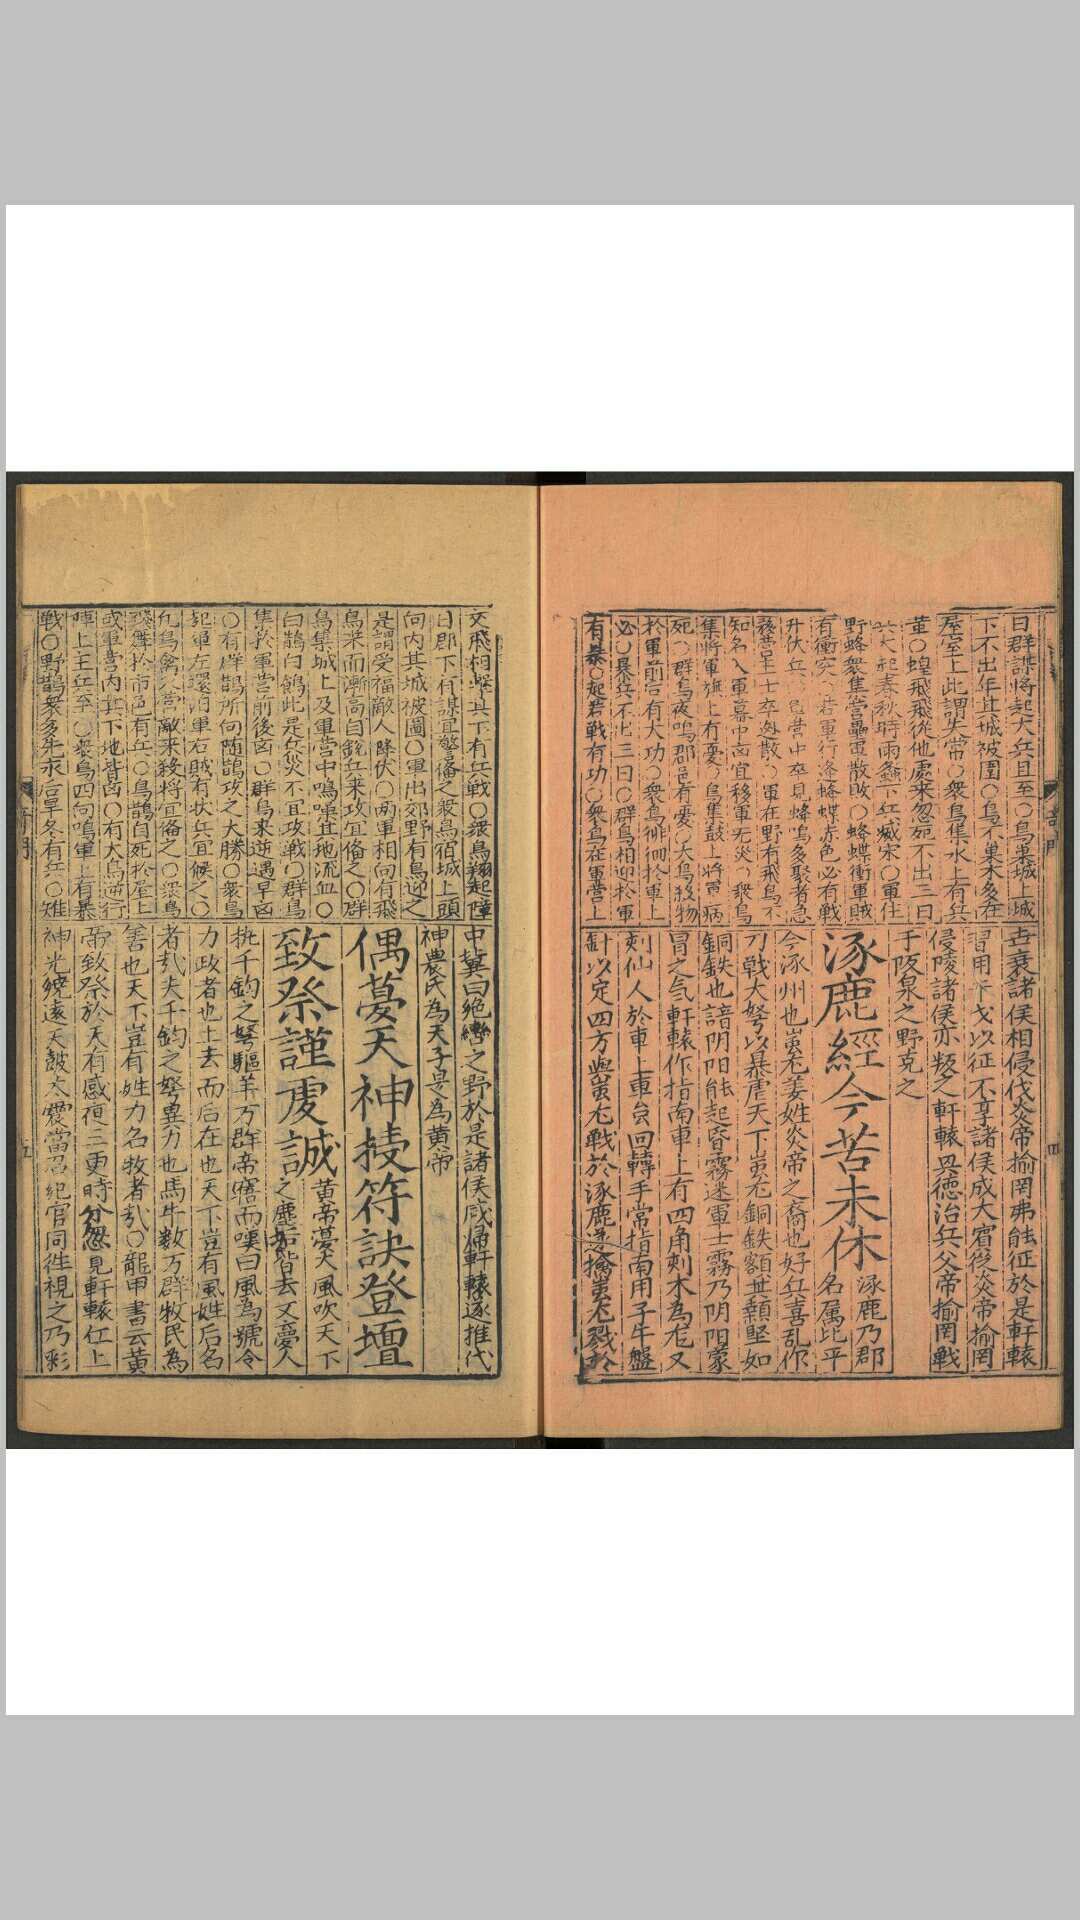 日群謀将起大兵且至〇鳥巢城上城
下不出年其城被圍〇鳥不巢木多在
屋室上此謂失常〇衆鳥集水上有兵
董〇蝗飛飛從他處来忽死不出三日
大起春秋時雨螽下兵臧宋〇軍住
野蜂衆集營壘軍散敗〇蜂蝶衝軍賊
有衝突 若軍行逢蜂蝶赤色必有戦
升伏兵 營中卒見蜂鳴多聚者急
移營主士卒迯散〇軍在野有飛鳥不
知名入軍幕中凶宜移軍无災 衆鳥
集將軍旗上有憂〇鳥集鼓上將軍病
死〇群鳥夜鳴郡邑有憂〇大鳥殺物
於軍前后有大功〇衆鳥徘徊於軍上
必〇暴兵不出三日〇群鳥相迎於軍
有暴〇起若戦有功〇衆鳥在軍營上
古衰諸侯相侵伐炎帝揄罔弗能征於是軒轅
習用干戈以征不享諸侯咸大賓後炎帝揄罔
侵陵諸侯亦叛之軒轅具德治兵父帝揄罔戰
于阪泉之野克之
涿鹿經今苦未休 涿鹿乃郡
名属北平
今涿州也蚩尤姜姓炎帝之裔也好兵喜乱作
刀戟大弩以暴虐天下蚩尤銅鉄額並顙堅如
銅鉄也諳阴阳能起昏霧迷軍士霧乃阴阳蒙
冒之气軒轅作指南車上有四角刺木為尤又
刻仙人於車上車虽回轉手常指南用子午盤
針以定四方與蚩尤戰於涿鹿遂擒蚩尤戮於
文飛相擊其下有兵戰〇衆鳥翔起障
日郡下有謀宜警備之衆鳥宿城上頭
向内其城被圖〇軍出郊野有鳥迎之
是謂受福敵人降伏〇两軍相向有飛
鳥来而漸高自銳兵来攻宜俻之〇群
鳥集城上及軍營中鳴噪其地流血〇
白鵲白鴿此是兵災不宜攻戦〇群鳥
集於軍營前後凶〇群鳥来逆遇早凶
〇有群鵲所向随鵲攻之大勝〇衆鳥
起軍左還泊軍右賊有状兵宜候之〇
凡鳥禽入營敵来殺將宜俻之〇衆鳥
殘群於市邑有兵〇鳥鵲自死於屋上
或軍營内其下地皆凶〇有大鳥逆行
陣上主兵至〇衆鳥四向鳴軍上有暴
戰〇野鵲衆多先水后旱冬有兵〇雉
中冀曰絶轡之野於是諸侯咸歸軒轅逐推代
神農氏為天子是為黄帝
偶夣天神授符訣登壇
致祭謹虔誠 黄帝夣大風吹天下
之塵垢皆去又夣人
執千鈞之弩驅羊万群帝寤而嘆曰風為號令
力政者也土去而后在也天下豈有風姓后名
者哉夫千鈞之弩異力也馬牛数万群牧民為
善也天下豈有姓力名牧者哉〇龍甲書云黄
帝致祭於天有感夜三更時分忽見軒轅仁上
神光繞遠天鼓大震當召紀官同徃視之乃彩